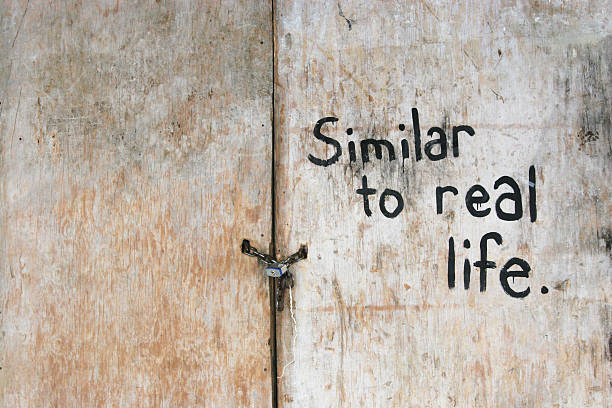 Similar
to real
life.